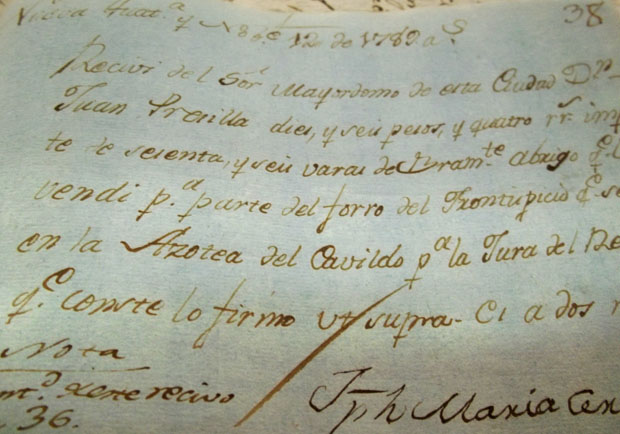 38
Nueva Guat.ª y 8re 12 de 1789 a.s
Recivi del Sor Mayordomo de esta Ciudad Dn
Juan Presilla dies, y seis pesos, y quatro rr.s imp
te de sesenta, y seis varas de Bram.te abrigo q.e
vendi p.ª parte del forro del Frontispicio q.e se
en la Azotea del Cavildo p.ª la Jura del Re
q.e conste lo firmo ut supra. Ci a dos r
Nota
recivo
36.
Jph Maria